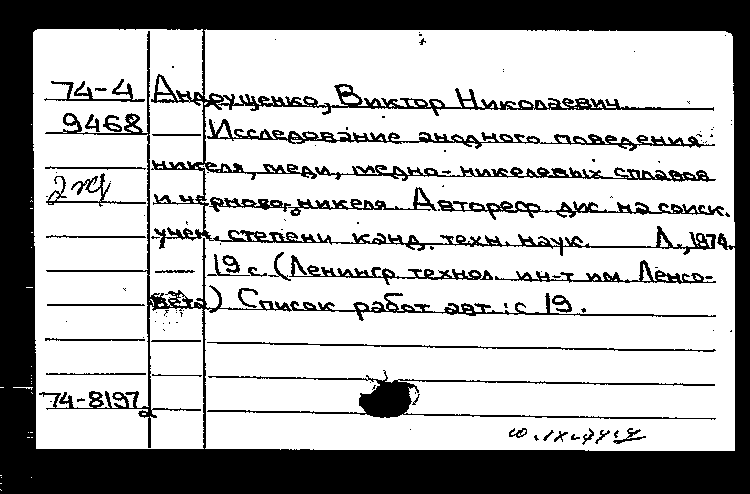 74-4 Андрущенко, Виктор Николаевич
9468 Исследование анодного поведения
никеля, меди, медно-никелевых сплавов
2 и черново, никеля. Автореф. дис. на соиск.
учен. степени канд. техн. наук. Л., 1974.
19 с. (Ленингр. технол. ин-т им. Ленсо-
вета) Список работ авт.: с 19.
74-8197а